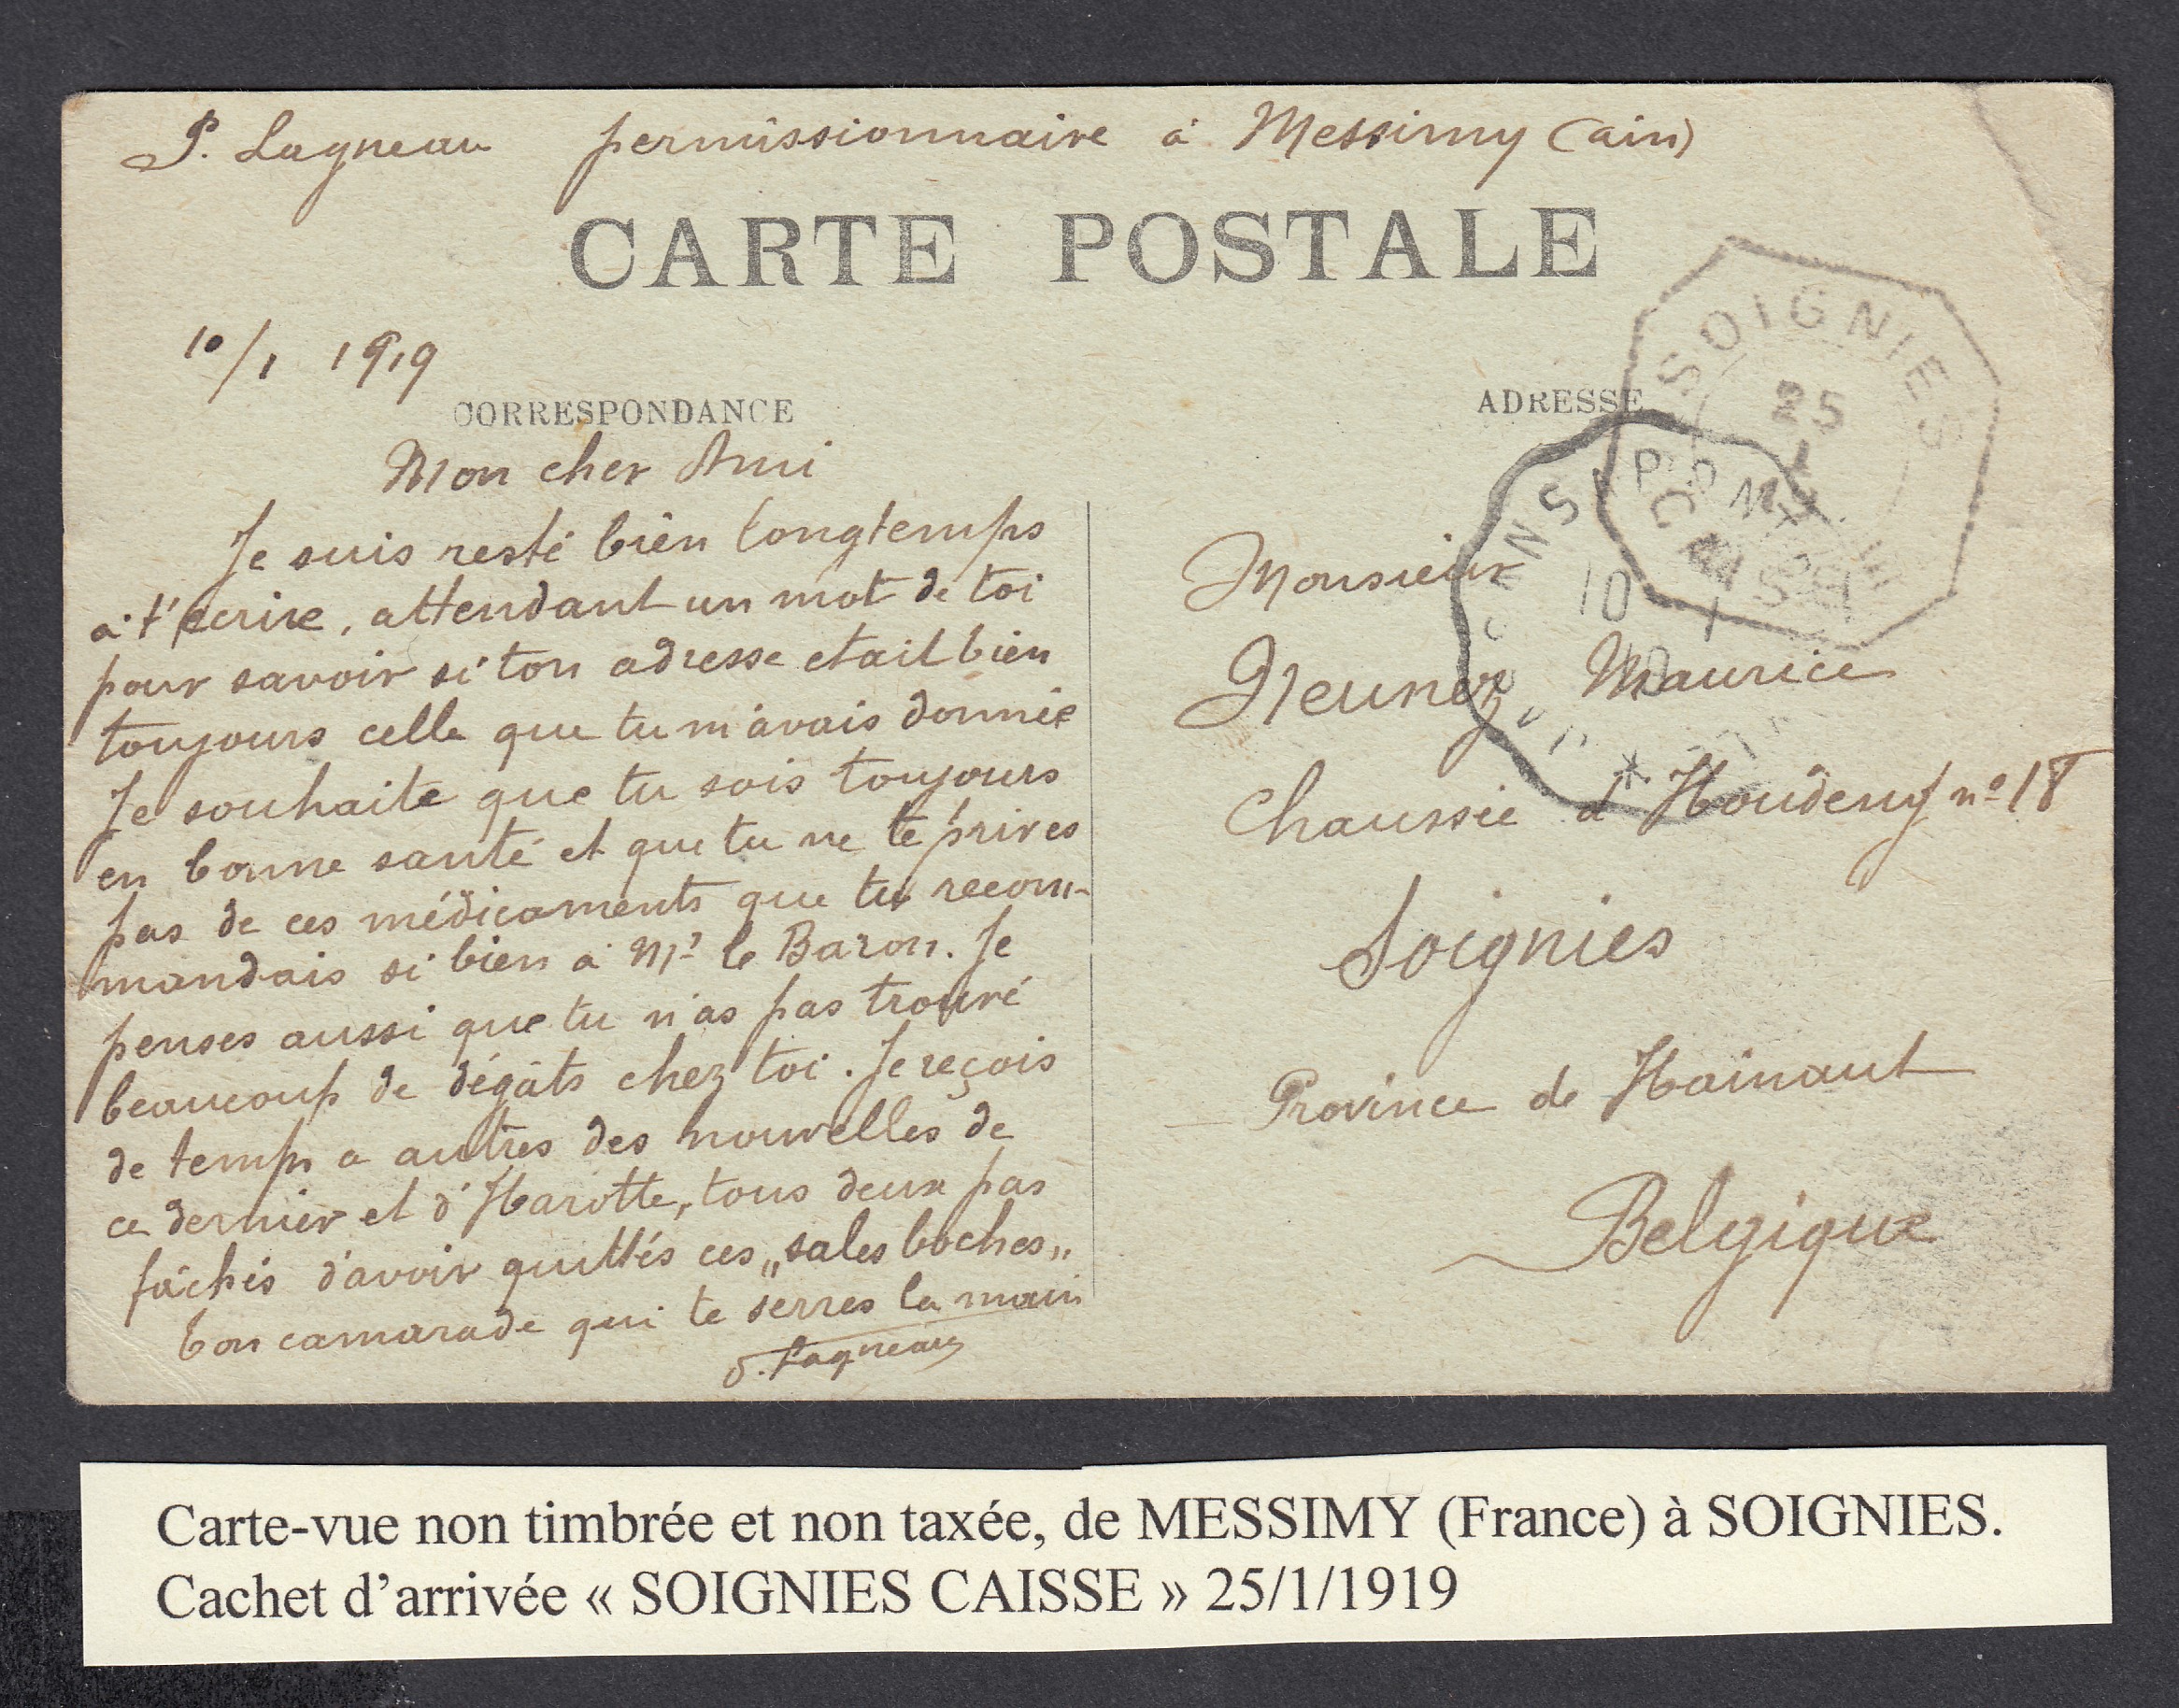 P. Lagneau permissionnaire à Messimy (ain)
CARTE POSTALE
10/1 1919
CORRESPONDANCE
Mon cher Ami
Je suis resté bien longtemps
a t'écrire, attendant un mot de toi
pour savoir si ton adresse etait bien
toujours celle que tu m'avais donnée
Je souhaite que tu sois toujours
en bonne santé et que tu ne te prives
pas de ces médicaments que tu recom-
mandais si bien a Mr le Baron. Je
penses aussi que tu n'as pas trouvé
beaucoup de dégâts chez toi. Je reçois
de temps a autres des nouvelles de
ce dernier et d'Harotte, tous deux pas
fâchés d'avoir quittés ces „sales boches„
Ton camarade qui te serres la main
P. Lagneau
ADRESSE
SOIGNIES
25
1
10 1
Monsieur
Maurice
Chaussée d' n° 18
Soignies
Province de Hainaut
Belgique
Carte-vue non timbrée et non taxée, de MESSIMY (France) à SOIGNIES.
Cachet d’arrivée « SOIGNIES CAISSE » 25/1/1919